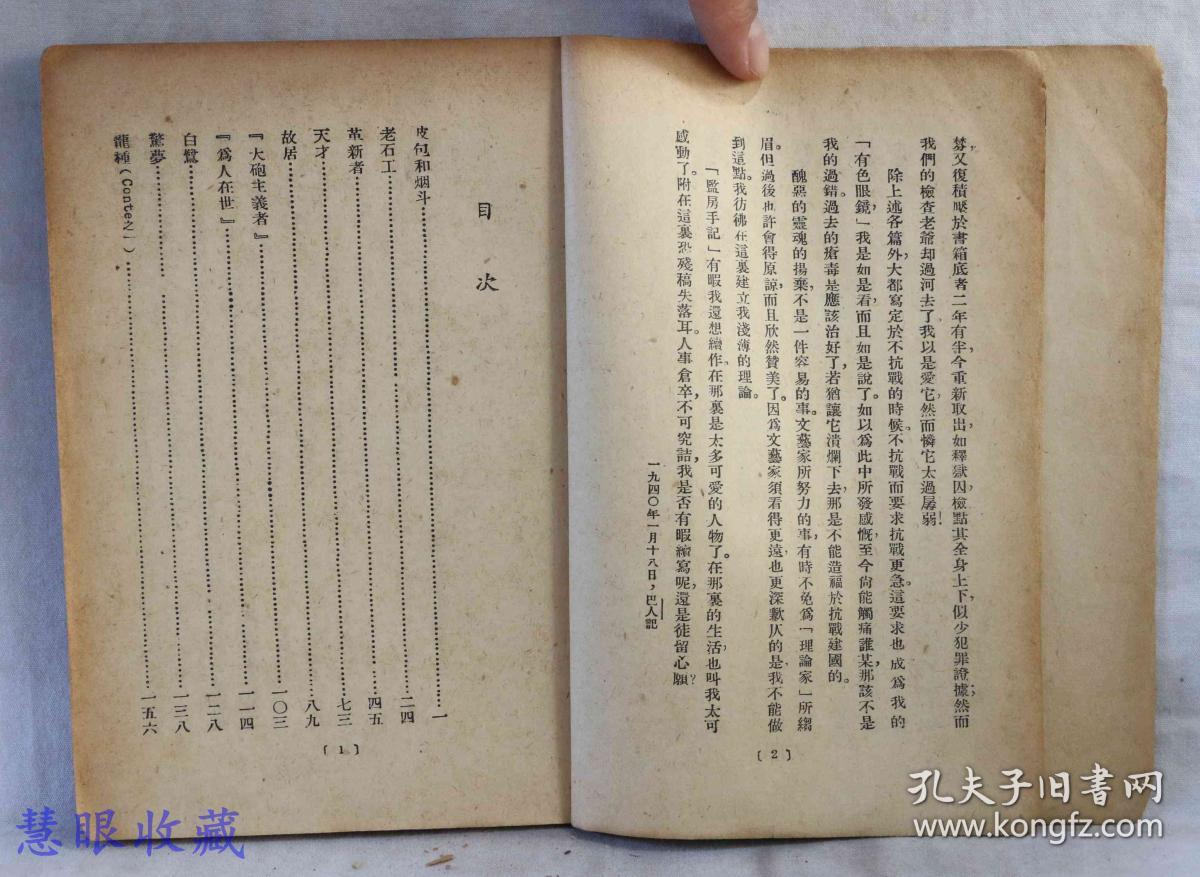 棼，又復積壓於書箱底者二年有半今重新取出，如釋獄囚，檢點其全身上下，似少犯罪證據；然而
我們的檢查老爺却過河去了我以是愛它，然而憐它太過孱弱！
除上述各篇外，大都寫定於不抗戰的時候。不抗戰而要求抗戰更急。這要求也成爲我的
「有色眼鏡」我是如是看，而且如是說了。如以爲此中所發感慨，至今尙能觸痛誰某，那該不是
我的過錯。過去的瘡毒是應該治好了，若猶讓它潰爛下去，那是不能造福於抗戰建國的。
醜惡的靈魂的揚棄，不是一件容易的事。文藝家所努力的事，有時不免爲「理論家」所縐
眉。但過後也許會得原諒，而且欣然贊美了。因爲文藝家須看得更遠，也更深歉仄的是，我不能做
到這點。我彷彿在這裏建立我淺薄的理論。
「監房手記」有暇我還想續作。在那裏是太多可愛的人物了。在那裏的生活，也叫我太可
感動了。附在這裏恐殘稿失落耳。人事倉卒，不可究詰，我是否有暇續寫呢，還是徒留心願？
一九四〇年一月十八日，巴人記
〔2〕
目次
皮包和烟斗……一
老石工……二四
革新者……四五
天才……七三
故居……八九
『大砲主義者』……一〇三
『爲人在世』……一一四
白鷺……一二八
驚夢……一三八
龍種（Conte之一）……一五六
〔1〕
慧眼收藏
孔夫子旧书网
www.kongfz.com